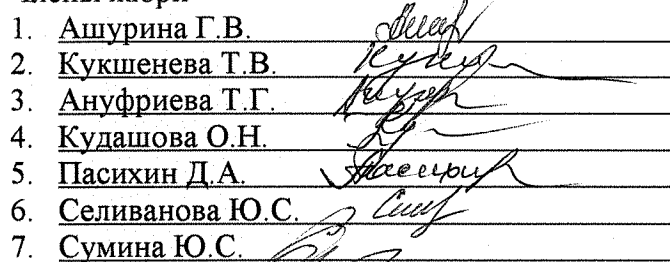 1. Ашурина Г.В.
2. Кукшенева Т.В.
3. Ануфриева Т.Г.
4. Кудашова О.Н.
5. Пасихин Д.А.
6. Селиванова Ю.С.
7. Сумина Ю.С.